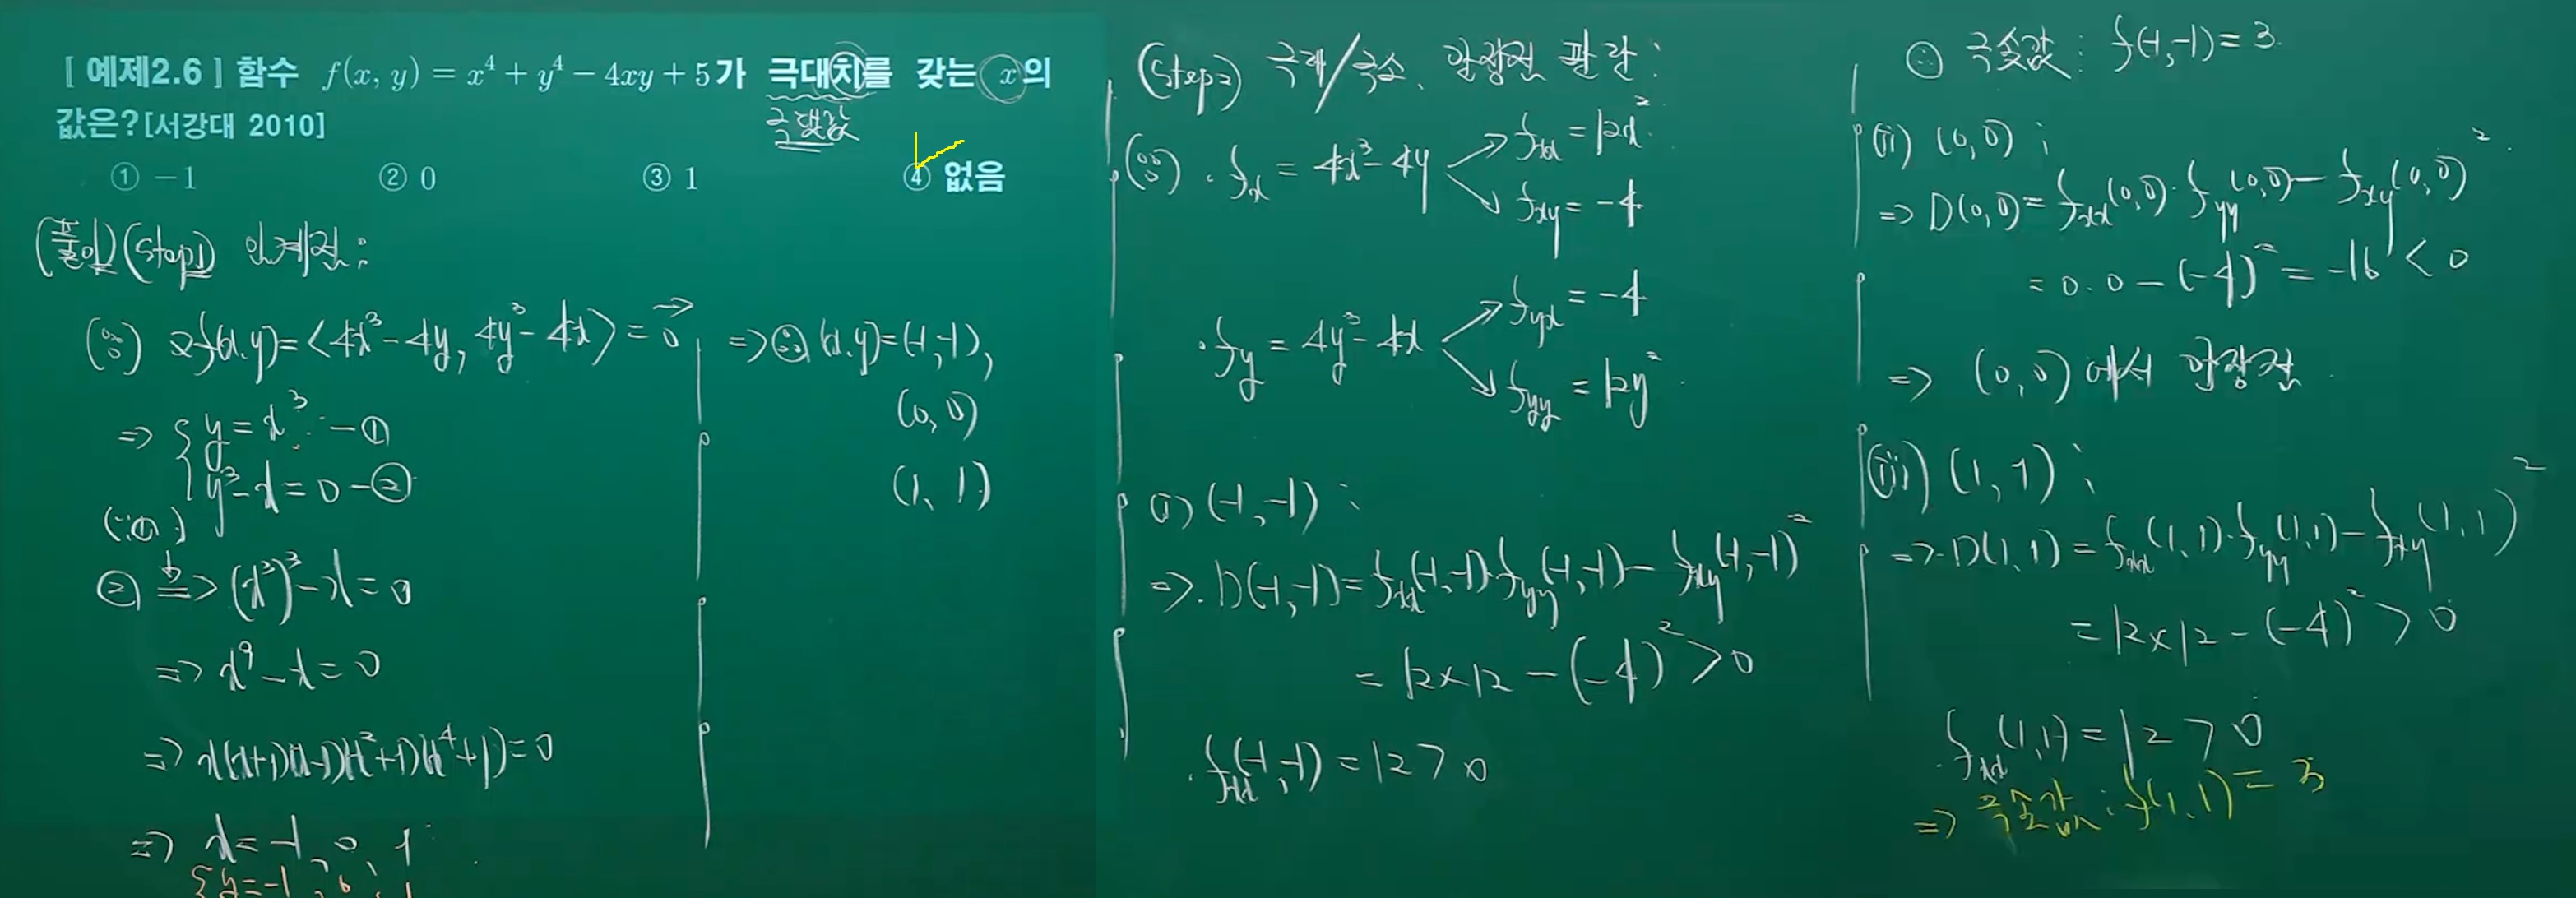 [ 예제2.6 ] 함수 f(x, y) = x⁴ + y⁴ − 4xy + 5가 극대치를 갖는 x의
값은? [서강대 2010]
극댓값
① −1 ② 0 ③ 1 ④ 없음
(풀이) (Step1) 임계점 :
(∵) ∇f(x,y) = <4x³ − 4y, 4y³ − 4x> = 0⃗
⇒ { y = x³ − ①
y³ − x = 0 − ②
(∵①)
② ⇒ (x³)³ − x = 0
⇒ x⁹ − x = 0
⇒ x(x+1)(x−1)(x²+1)(x⁴+1) = 0
⇒ x = −1, 0, 1
{ y = −1, 0, 1
⇒ ∴ (x,y) = (−1,−1),
(0, 0)
(1, 1)
(Step2) 극대/극소, 안장점 판단 :
(∵) · fx = 4x³ − 4y
fxx = 12x²
fxy = −4
· fy = 4y³ − 4x
fyx = −4
fyy = 12y²
(i) (−1, −1) :
⇒ · D(−1,−1) = fxx(−1,−1) · fyy(−1,−1) − fxy(−1,−1)²
= 12×12 − (−4)² > 0
· fxx(−1,−1) = 12 > 0
∴ 극솟값 : f(−1,−1) = 3.
(ii) (0, 0) ;
⇒ D(0,0) = fxx(0,0) · fyy(0,0) − fxy(0,0)²
= 0·0 − (−4)² = −16 < 0
⇒ (0,0) 에서 안장점.
(iii) (1, 1) ;
⇒ · D(1,1) = fxx(1,1) · fyy(1,1) − fxy(1,1)²
= 12×12 − (−4)² > 0
· fxx(1,1) = 12 > 0
⇒ 극솟값 : f(1,1) = 3